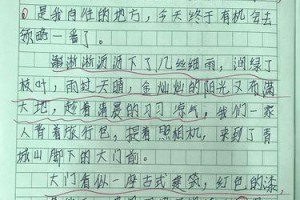 是我向往的地方，今天终于有机会去
领略一番了。
渐渐沥沥下了几丝细雨，润绿了
枝叶，雨过天晴，金灿灿的阳光又布满
大地，趁着清晨的习习凉气，我们一家
人背着旅行包，提着照相机，来到了青
城山脚下的大门前。
大门有似一座古式建筑，红色的漆，